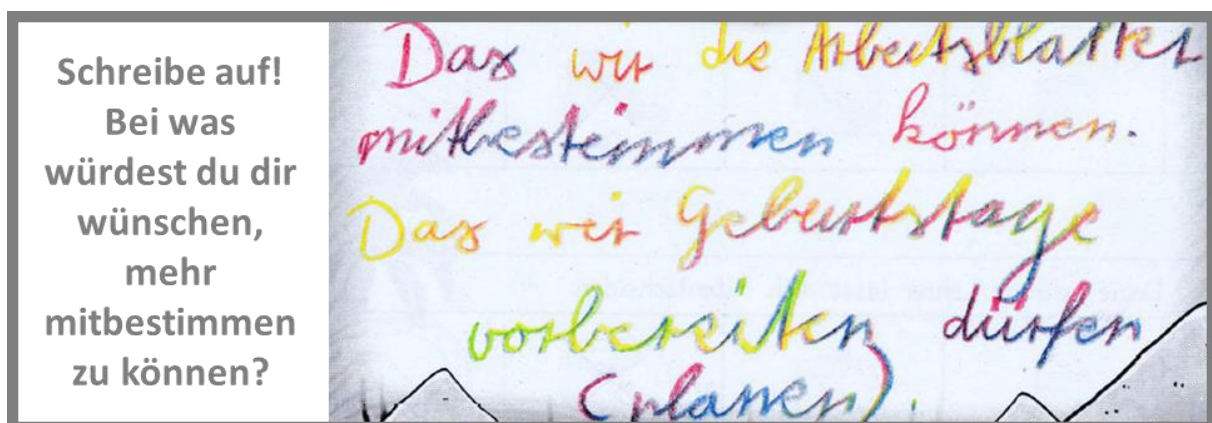 Schreibe auf!
Bei was
würdest du dir
wünschen,
mehr
mitbestimmen
zu können?
Das wir die Arbeitsblätter
mitbestimmen können.
Das wir Geburtstage
vorbereiten dürfen
(planen).